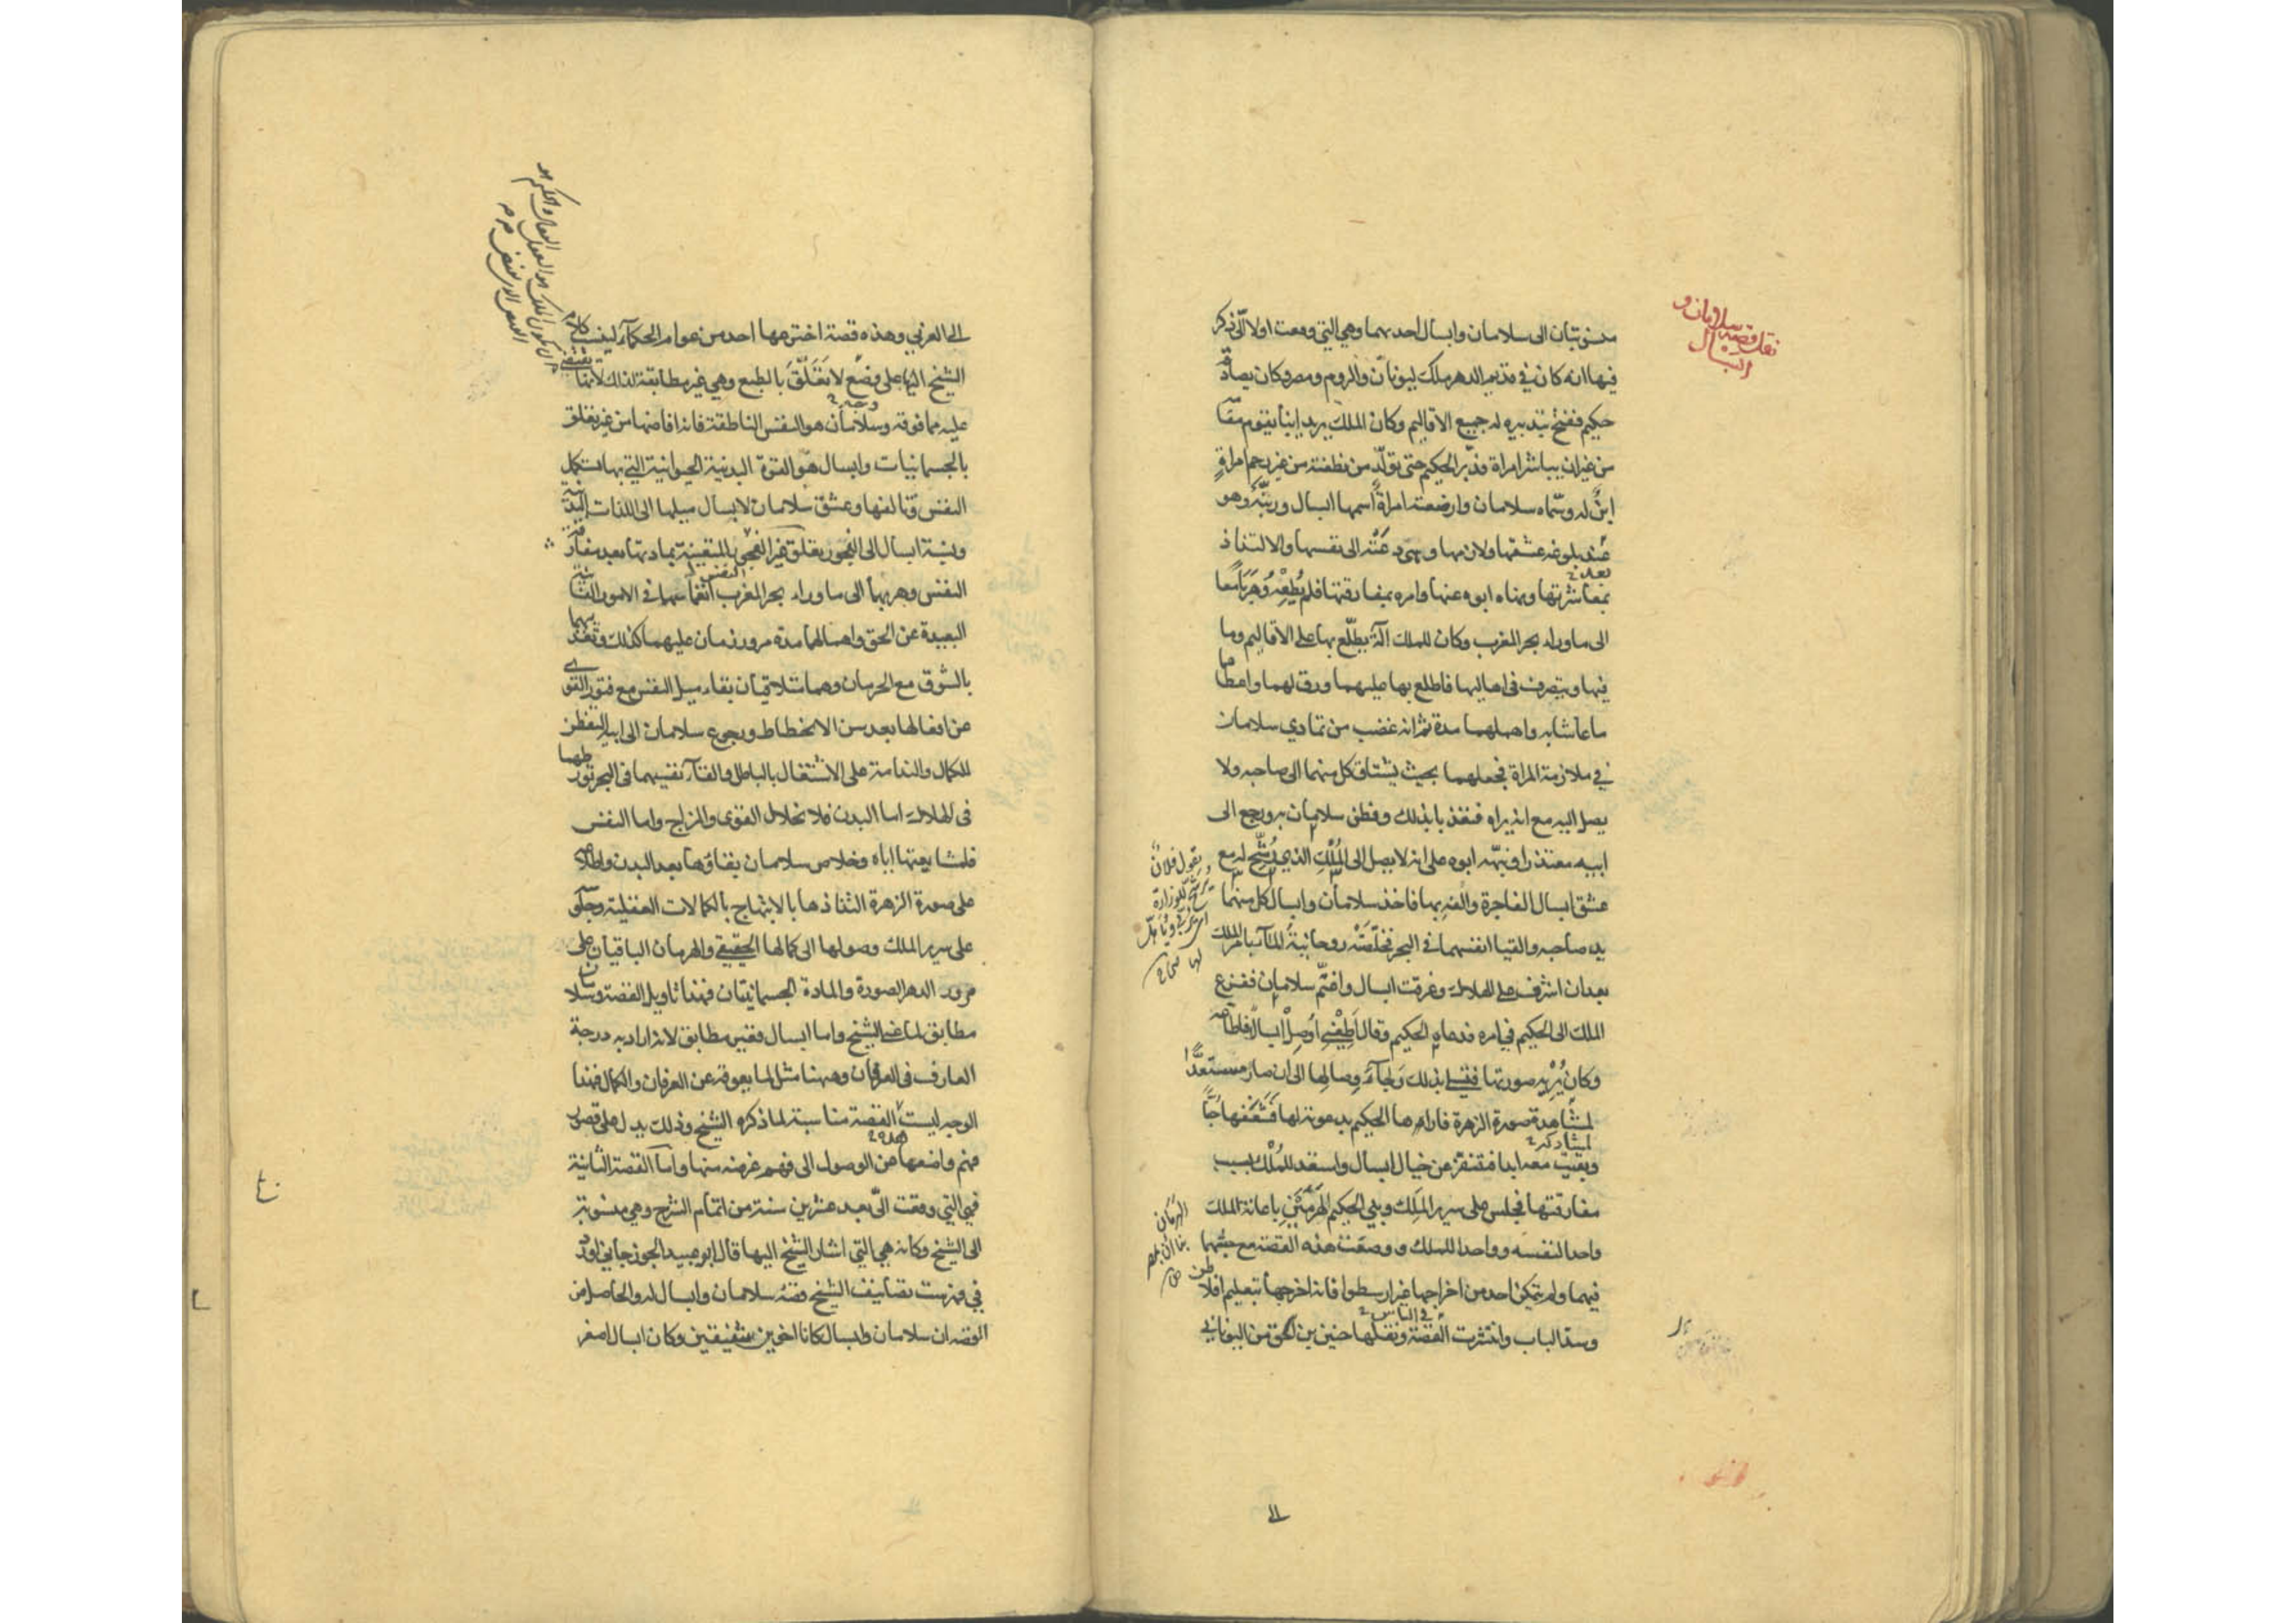 نقل قصة سلامان و
ابسال
منسوبتان الى سلامان وابسال احديهما وهي التي وقعت اولا الّى ذكر
فيها انه كان في قديم الدهر ملك ليونان والروم ومصر وكان يصادقه
حكيم ففتح بتدبيره له جميع الاقاليم وكان الملك يريد ابنا يقوم مقامه
من غير ان يباشر امراة فدبّر الحكيم حتى تولّد من نطفته من غير رحم امراةٍ
ابنٌ له وسمّاه سلامان وارضعته امراةٌ اسمها ابسال وربّته وهو
عند بلوغه عشقها ولازمها وهي دعته الى نفسها والالتذاذ
بمعاشرتها ونهاه ابوه عنها وامره بمفارقتها فلم يُطِعْه وهَرَبَا معا
الى ماوراء بحر المغرب وكان للملك آلة يطّلع بها على الاقاليم وما
فيها ويتصرف في اهاليها فاطلع بها عليهما ورق لهما واعطاهما
ما عاشا به واهملهما مدة ثم انه غضب من تمادي سلامان
في ملازمة المراة فجعلهما بحيث يشتاق كل منهما الى صاحبه ولا
يصل اليه مع انه يراه فتعذبا بذلك وفطن سلامان به ورجع الى
ابيه معتذرا ونبّهه ابوه على انه لا يصل الى المُلْكِ الذي رُشِّح له مع
عشق ابسال الفاجرة والفه بها فاخذ سلامان وابسال كل منهما
يد صاحبه والقيا انفسهما في البحر فخلّصَتْه روحانيةُ المآء بامر الملك
بعد ان اشرف على الهلاك وغرقت ابسال واغتمّ سلامان ففزع
الملك الى الحكيم في امره فدعاه الحكيم وقال أطِعْني اُوصِلْ ابسالا فاطاعه
وكان يُرْيه صورتها فتسلى بذلك رجآء وصالها الى ان صار مستعدًّا
لمشاهدة صورة الزهرة فاراها الحكيم بدعوته لها فشغفها حبًّا
وبقيت معه ابدا فتنفّر عن خيال ابسال واستعد للمُلْك بسبب
مفارقتها فجلس على سرير المَلِك وبنى الحكيم الهَرَمَيْنِ باعانة الملك
واحدا لنفسه وواحدا للملك ووضعت هذه القصة مع جثتهما
فيهما ولم يتمكن احد من اخراجها غير ارسطو فانه اخرجها بتعليم افلاطن
وسدّ الباب وانتشرت القصة ونقلها حنين بن اسحق من اليوناني
الى العربي وهذه قصة اخترعها احد من عوام الحكمآء لينسب كلام
الشيخ اليها على وضع لا تعَلُّقَ بالطبع وهي غير مطابقة لذلك لانها تقتضي
عليه مما فوقه وسلامان هو النفس الناطقة فانه افاضها من غير تعلق
بالجسمانيات وابسال هو القوة البدنية الحيوانية التي بها تستكمل
النفس وتالفها وعشق سلامان لابسال ميلها الى اللذات البدنية
ونسبة ابسال الى الفجور تعلق غير النفس المتعينة بمادتها بعد مفارقة
النفس وهربهما الى ماوراء بحر المغرب انغماسهما في الامور الفانية
البعيدة عن الحق واهمالهما مدة مرور زمان عليهما كذلك وتعذيبهما
بالشوق مع الحرمان وهما متلاقيان بقاء ميل النفس مع فتور القوى
عن افعالها بعد سن الانحطاط ورجوع سلامان الى ابيه التفطن
للكمال والندامة على الاشتغال بالباطل والقآء نفسيهما في البحر تورطهما
في الهلاك اما البدن فلانحلال القوى والمزاج واما النفس
فلمشايعتها اياه وخلاص سلامان بقاؤها بعد البدن واطلاعه
على صورة الزهرة التذاذها بالابتهاج بالكمالات العقلية وجلوسه
على سرير الملك وصولها الى كمالها الحقيقي والهرمان الباقيان على
مرور الدهر الصورة والمادة الجسمانيتان فهذا تاويل القصة وسلامان
مطابق لما عنى الشيخ واما ابسال فغير مطابق لانه اراد به درجة
العارف في العرفان وههنا مثل لما يعوقه عن العرفان والكمال فبهذا
الوجه ليست القصة مناسبة لما ذكره الشيخ وذلك يدل على قصور
فهم واضعها عن الوصول الى فهم غرضه منها واما القصة الثانية
فهي التي وقعت الىّ بعد عشرين سنة من اتمام الشرح وهي منسوبة
الى الشيخ وكانه هي التي اشار الشيخ اليها فان ابا عبيد الجوزجاني اورد
في فهرست تصانيف الشيخ قصة سلامان وابسال له والحاصل من
القصة ان سلامان وابسال كانا اخوين شقيقين وكان ابسال اصغر